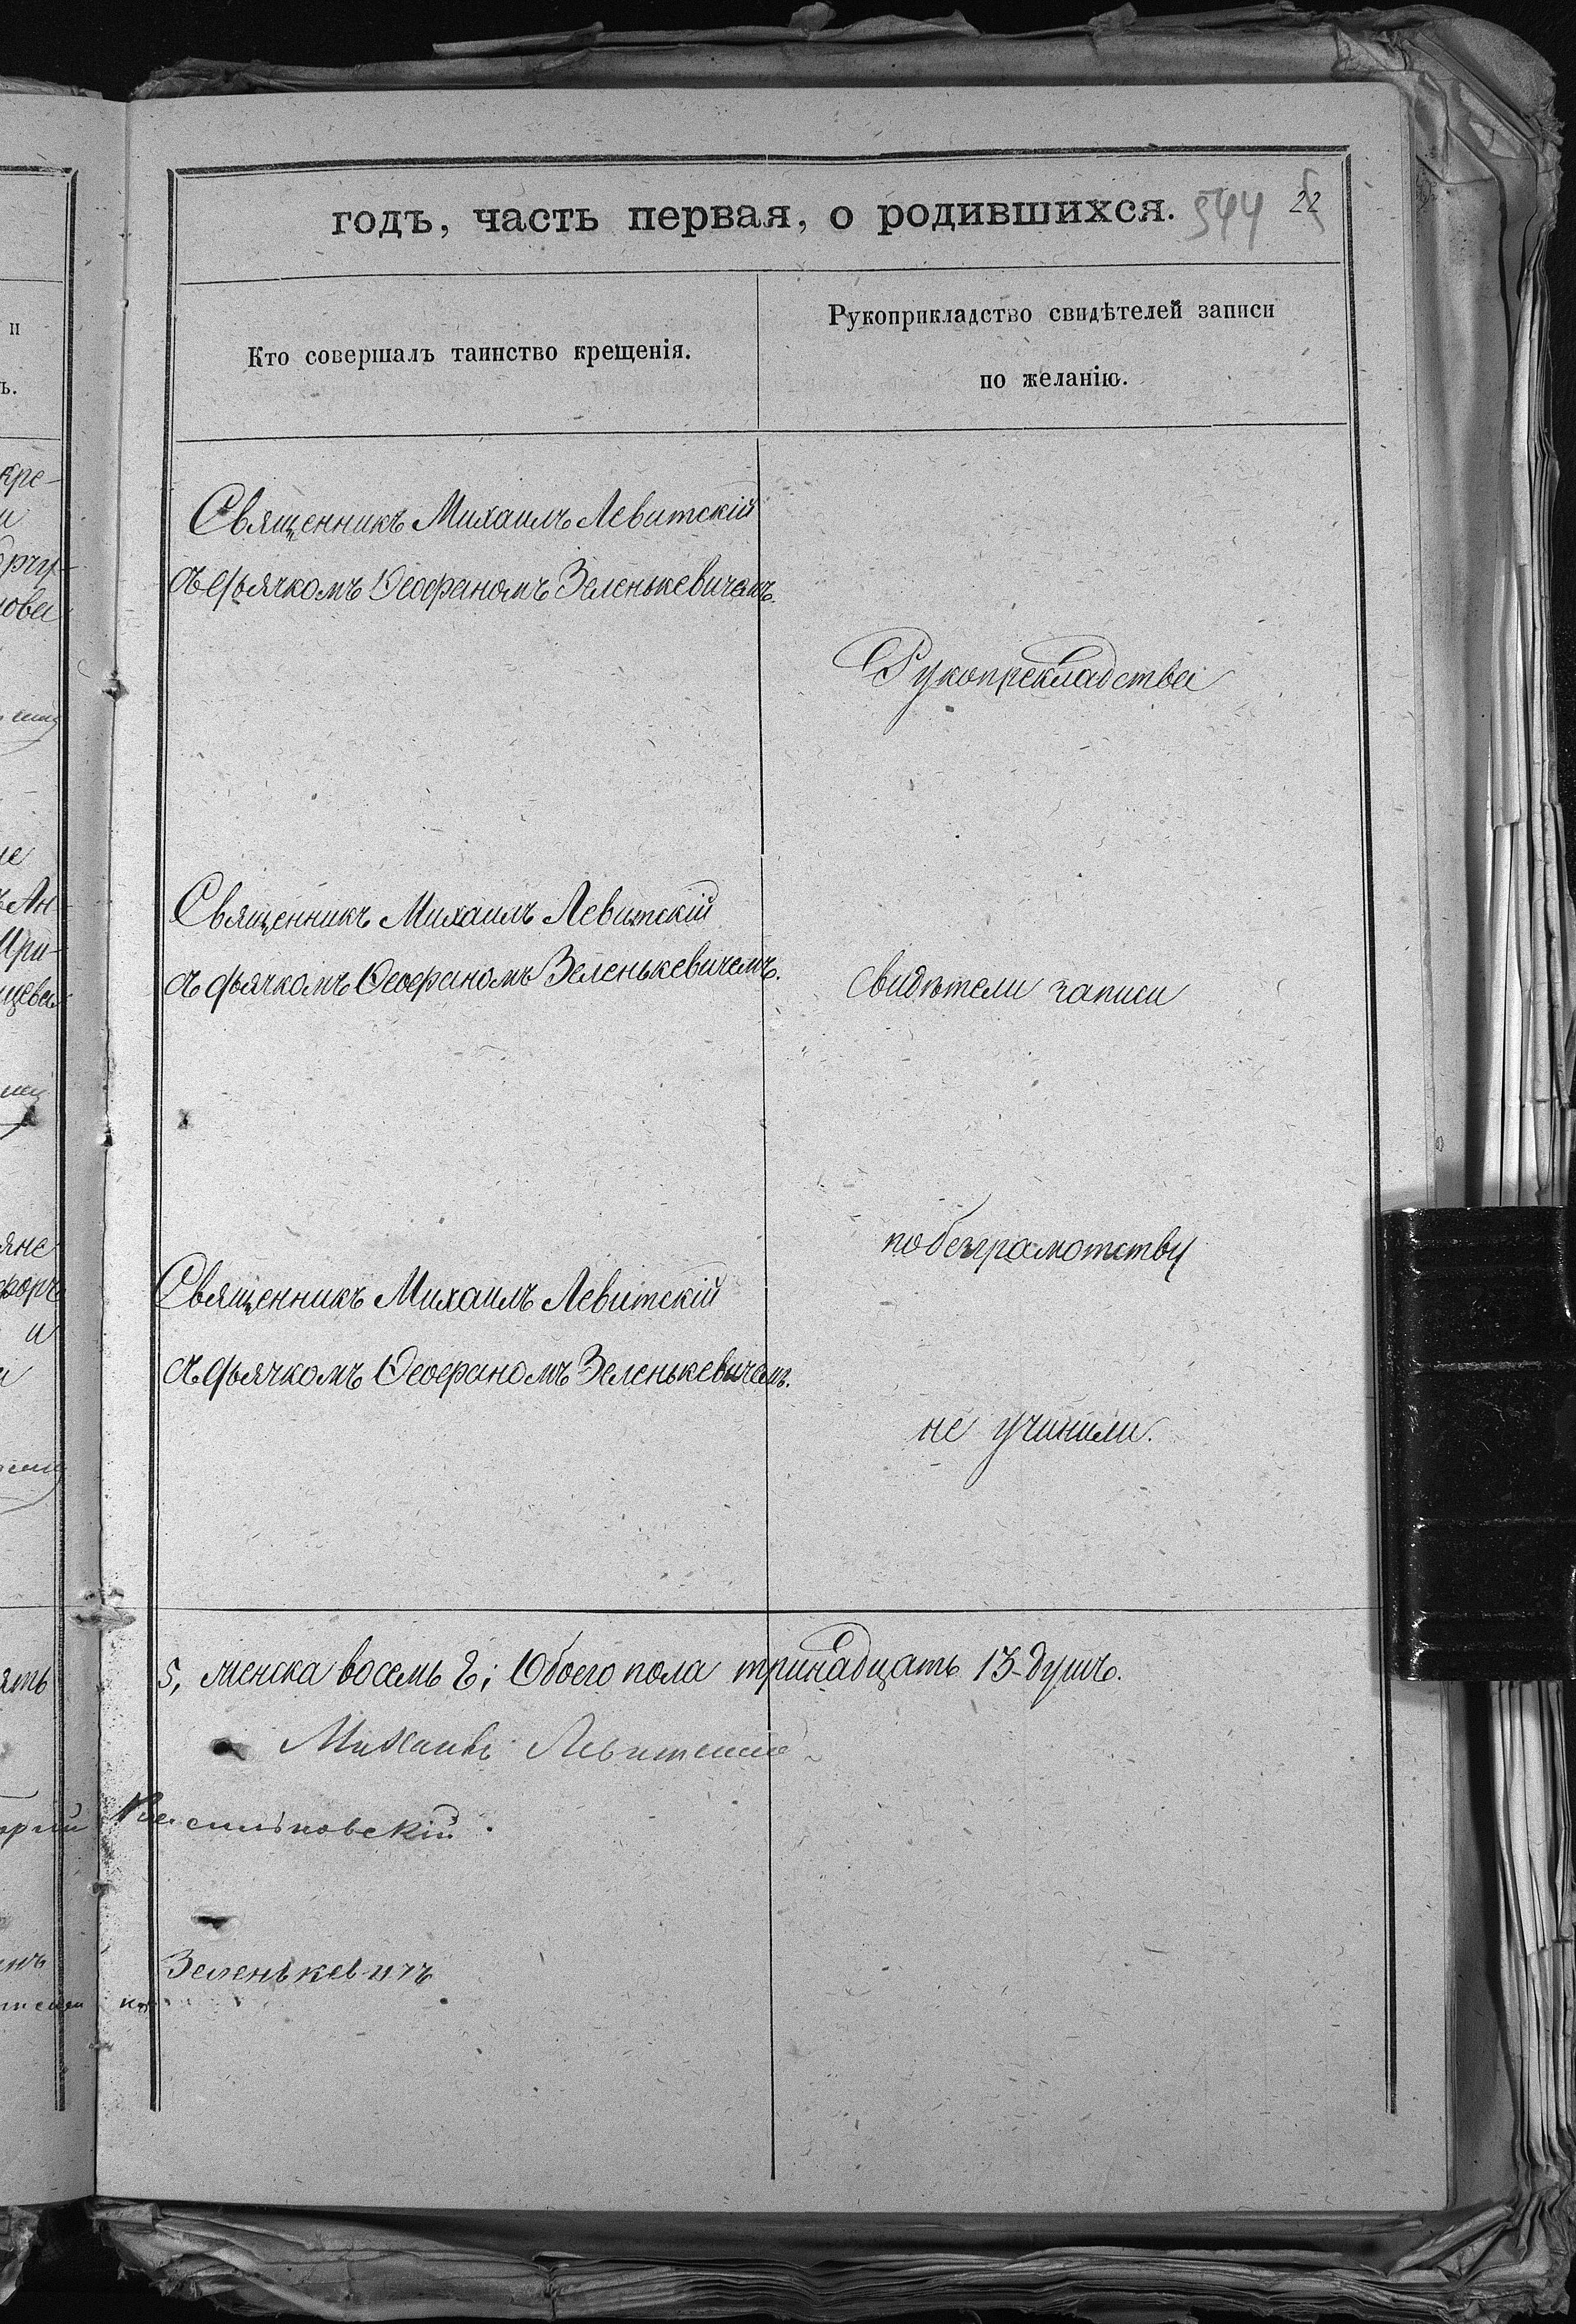 годъ, часть первая, о родившихся. 544 22
Кто совершалъ таинство крещенія.
Рукоприкладство свидѣтелей записи
по желанію.
Священникъ Михаилъ Левитскій
съ дьячкомъ Ѳеофаномъ Зеленькевичемъ.
Рукопрекладства
Священникъ Михаилъ Левитскій
съ дьячкомъ Ѳеофаномъ Зеленькевичемъ.
свидѣтели записи
по безграмотству
Священникъ Михаилъ Левитскій
съ дьячкомъ Ѳеофаномъ Зеленькевичемъ.
не учинили.
5, женска восемь 8; Обоего пола тринадцать 13-душъ.
Михаилъ Левитскій
Васильковскій.
Зеленькевичъ